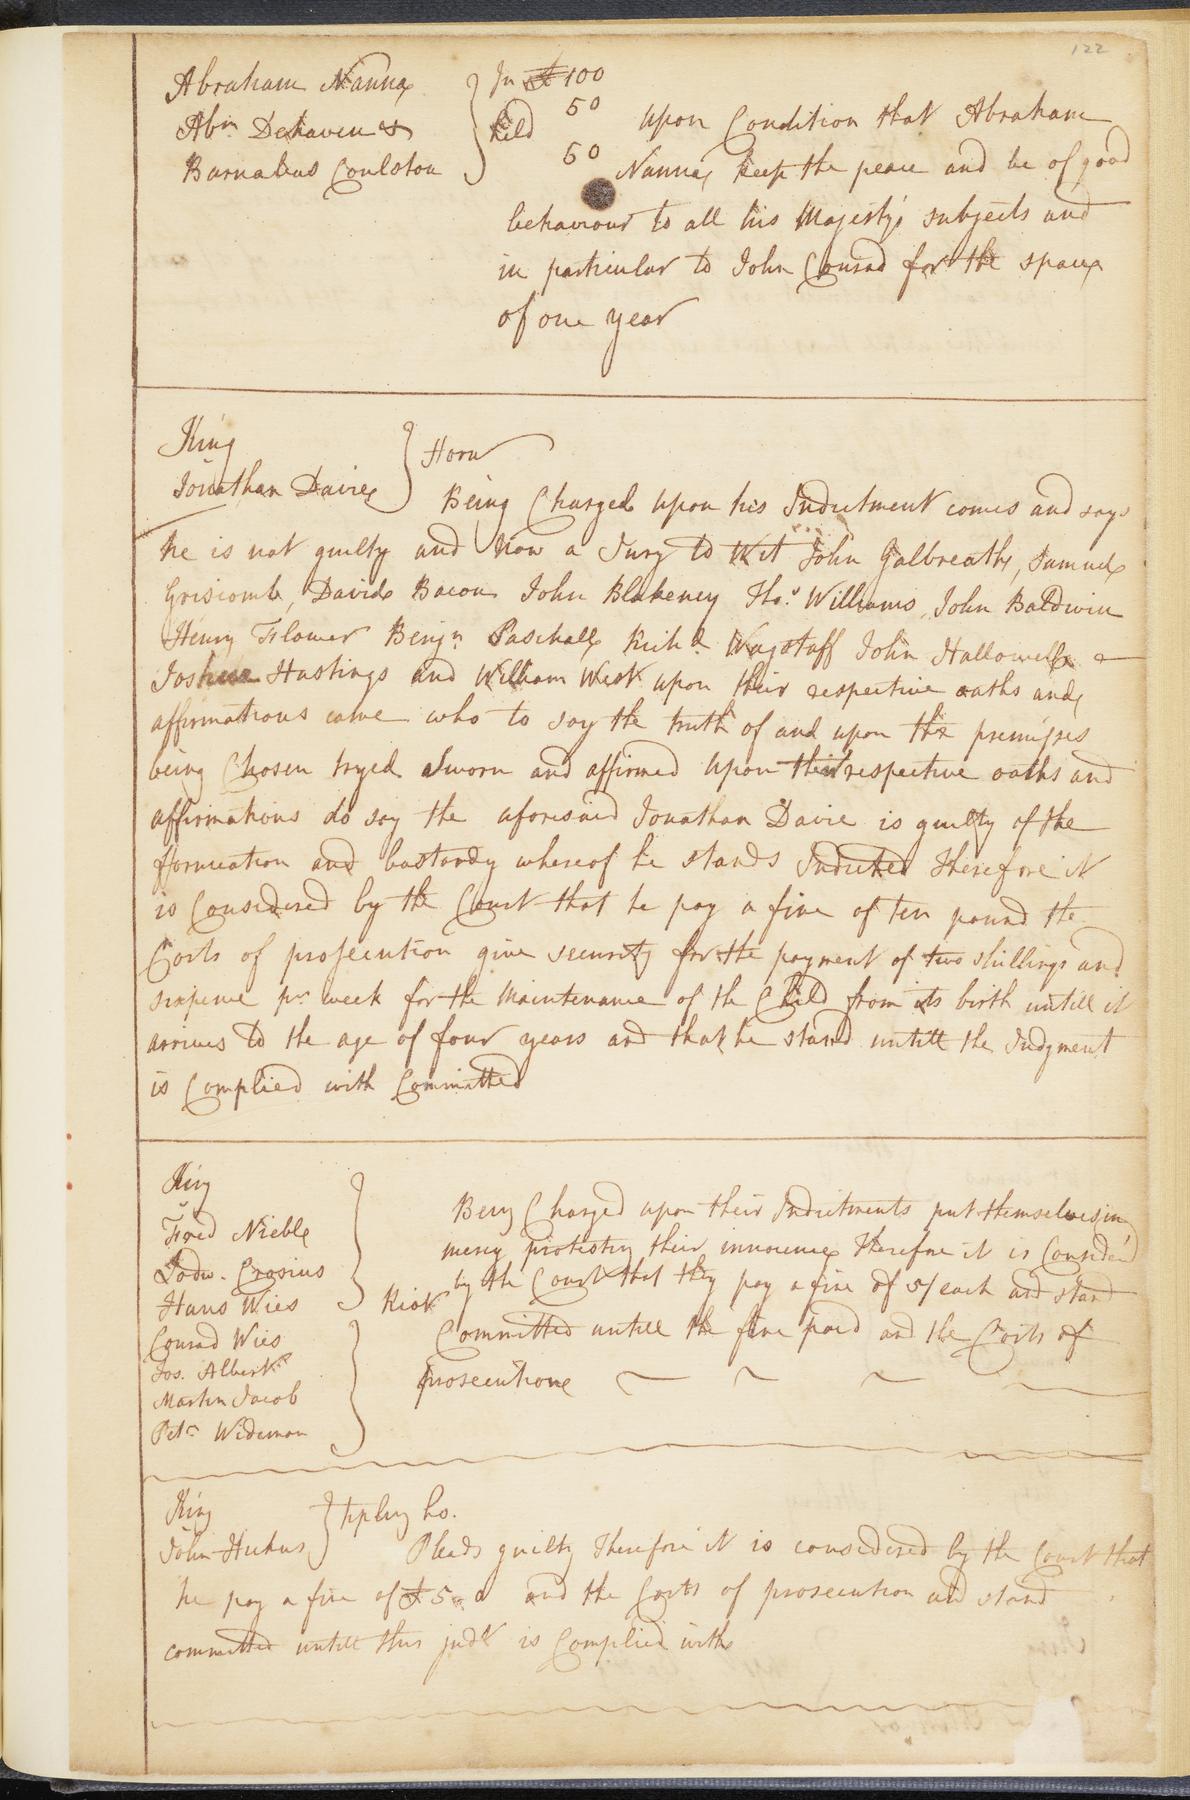 122
Abraham Nanna } In £100
Abm. Dehaven & } held 50 upon Condition that Abraham
Barnabus Coulston } 50 Nanna keep the peace and be of good
behaviour to all his Majesty's subjects and
in particular to John Conrad for the space
of one year
King
v
Jonathan Davie } Forn
Being Charged upon his Indictment comes and says
he is not guilty and now a Jury to wit John Galbreath, Samuel
Griscomb, David Bacon John Blakeney Thos. Williams, John Baldwin
Henry Flower Benjn Paschall Richd. Wagstaff John Hallowell
Joshua Hastings and William West upon their respective oaths and
affirmations came who to say the truth of and upon the premisses
being Chosen tryed sworn and affirmed upon their respective oaths and
affirmations do say the aforesaid Jonathan Davie is guilty of the
fornication and bastardy whereof he stands Indicted Therefore it
is Considered by the Court that he pay a fine of ten pound the
Costs of prosecution give security for the payment of two shillings and
sixpence pr week for the Maintenance of the Child from its birth untill it
arrives to the age of four years and that he stand untill the Judgment
is Complied with Committed
King
v
Fred Nieble
Lodw. Crosius
Hans Wies
Conrad Wies
Jos. Albert
Martin Jacob
Petr Wideman
Riot
Being Charged upon their Indictments put themselves in
mercy protesting their innocence Therefore it is Consider'd
by the Court that they pay a fine of 5/ each and stand
Committed untill the fine paid and the Costs of
prosecution
King
v
John Hukus } tipling ho.
Pleads guilty Therefore it is considered by the Court that
he pay a fine of £5 and the Costs of prosecution and stand
committed untill this judt is Complied with